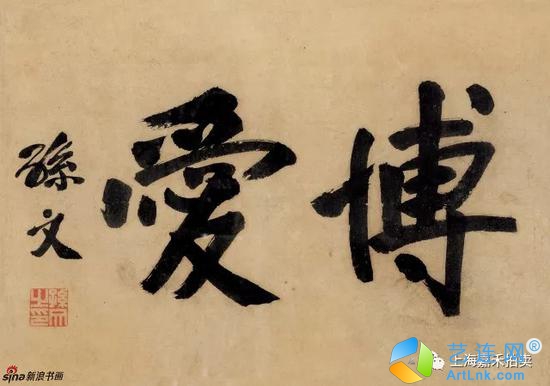 博愛
孫文
孫文之印
sina新浪书画
上海嘉禾拍卖
艺连网®
ArtLnk.com